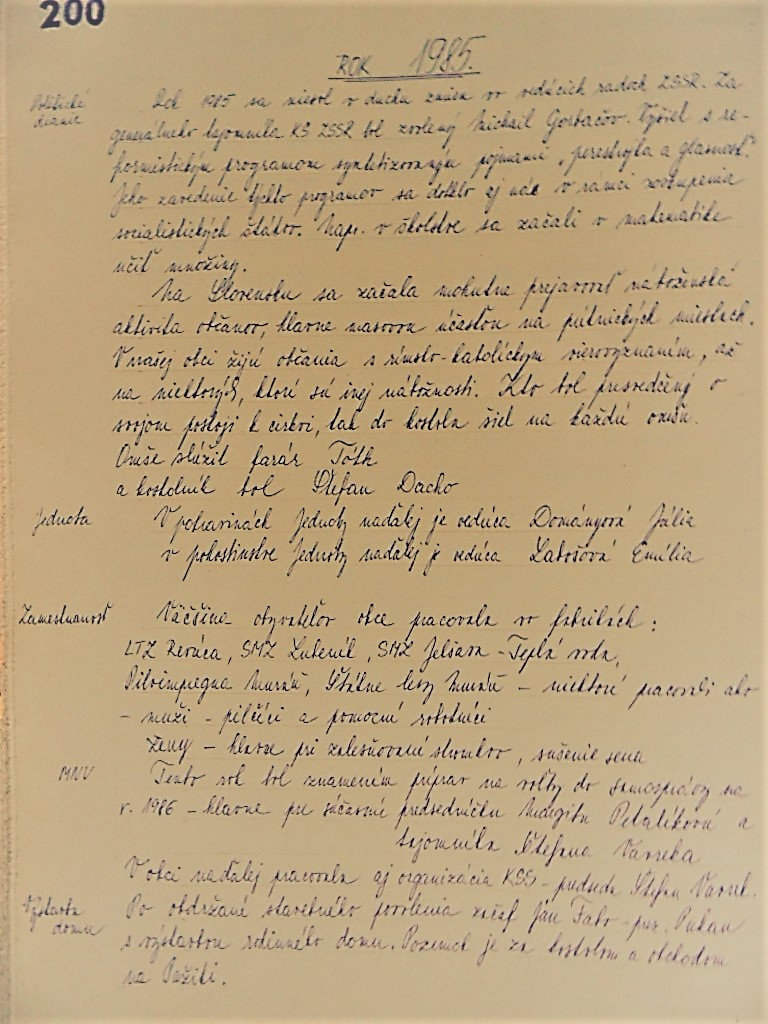 200
ROK 1985.
Politické dianie
Rok 1985 sa niesol v duchu zmien vo vedúcich radoch ZSSR. Za
generálneho tajomníka KS ZSSR bol zvolený Michail Gorbačov. Vyšiel s re-
formistickým programom syntetizovaným pojmami „perestrojka a glasnosť."
Jeho zavedenie týchto programov sa dotklo aj nás v rámci zoskupenia
socialistických štátov. Napr. v školstve sa začali v matematike
učiť množiny.
Na Slovensku sa začala mohutne prejavovať náboženská
aktivita občanov, hlavne masovou účasťou na pútnických miestach.
V našej obci žijú občania s rímsko-katolíckym vierovyznaním, až
na niektorých, ktorí sú inej nábožnosti. Kto bol presvedčený o
svojom postoji k cirkvi, tak do kostola šiel na každú omšu.
Omše slúžil farár Tóth
a kostolník bol Štefan Dacho
Jednota
V potravinách Jednoty naďalej je vedúca Dományová Júlia
v pohostinstve Jednoty naďalej je vedúca Latošová Emília
Zamestnanosť
Väčšina obyvateľov obce pracovala vo fabrikách:
LTZ Revúca, SMZ Lubeník, SMZ Jelšava - Teplá voda,
Piloimpregna Muráň, Štátne lesy Muráň - niektorí pracovali ako
- muži - pilčíci a pomocní robotníci
ženy - hlavne pri zalesňovaní stromkov, sušenie sena
MNV
Tento rok bol znamením príprav na voľby do samosprávy na
r. 1986 - hlavne pre súčasnú predsedníčku Margitu Petrlíkovú a
tajomníka Štefana Vavreka
V obci naďalej pracovala aj organizácia KSS - predseda Štefan Vavrek.
Výstavba domu
Po obdržaní stavebného povolenia začal Ján Fabo - prez. Pukan
s výstavbou rodinného domu. Pozemok je za kostolom a obchodom
na Pažiti.